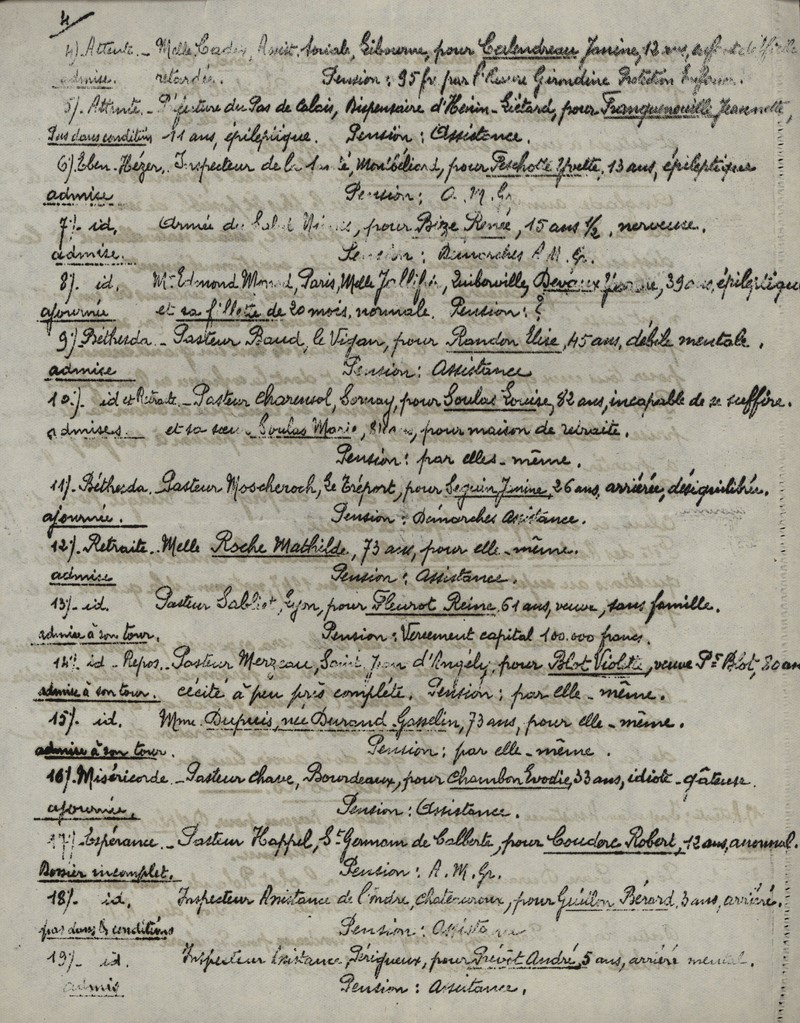 4
4). Attente. - Melle Cadix, Assist. Sociale, Libourne, pour Calendreau Janine, 12 ans,
admise. retardée. Pension : 95 fr par l'Oeuvre Girondine Protection Enfance.
5). Attente. - Préfecture du Pas de Calais, Dispensaire d'Hénin-Liétard, pour Franquenouille Jeannette,
Pas dans conditions 11 ans, épileptique. Pension : Assistance.
6). Eben-Hézer. Inspecteur de la Santé, Montbéliard, pour Peschotte Yvette, 13 ans, épileptique
admise Pension : A. M. G.
7). id. Armée du Salut Nîmes, pour Bize Renée, 15 ans ½, nerveuse.
admise. Pension : Démarches A. M. G.
8). id. Mr Edmond Monod, Paris, Melle Quiberville, Devaux 39 ans, épileptique
ajournée et sa fillette de 20 mois, normale. Pension : ?
9). Béthesda. - Pasteur Baud, le Vigan, pour Randon Elise, 45 ans, débile mentale.
admise Pension : Assistance
10). id et Retraite. - Pasteur Charensol, Sornay, pour Soulas Louise, 82 ans, incapable de se suffire.
admises. et sa soeur Soulas Marie, ans, pour maison de retraite.
Pension : par elles-même.
11). Béthesda. Pasteur Moscheroch, Le Tréport, pour Seguin Janine, 26 ans, arriérée, déséquilibrée.
ajournée. Pension : Démarches Assistance.
12). Retraite. - Melle Roche Mathilde, 73 ans, pour elle-même.
admise Pension : Assistance.
13). id. Pasteur Sabliet, Lyon, pour Fleurot Reine, 61 ans, veuve, sans famille.
admise à son tour. Pension : Versement capital 100.000 francs.
14). id - Repos. - Pasteur Merzeau, Saint Jean d'Angély, pour Blot Violette, veuve Pr Blot, 80 ans
admise à son tour. cécité à peu près complète. Pension : par elle-même.
15). id. Mme Dupuis, née Durand-Gasselin, 73 ans, pour elle-même.
admise à son tour. Pension : par elle-même.
16). Miséricorde. - Pasteur Chave, Bourdeaux, pour Chambon Evodie, 33 ans, idiote-gâteuse.
ajournée. Pension : Assistance.
17). Espérance. - Pasteur Happel, St Germain de Calberte, pour Couderc Robert, 12 ans, anormal.
Dossier incomplet. Pension : A. M. G.
18). id. Inspecteur Assistance de l'Indre, Chateauroux, pour Guillon Bérard, 3 ans, arriéré.
pas dans les conditions Pension : Assistance
19). id. Inspecteur Assistance, Périgueux, pour Prévot André, 5 ans, arriéré mental.
admis Pension : Assistance.